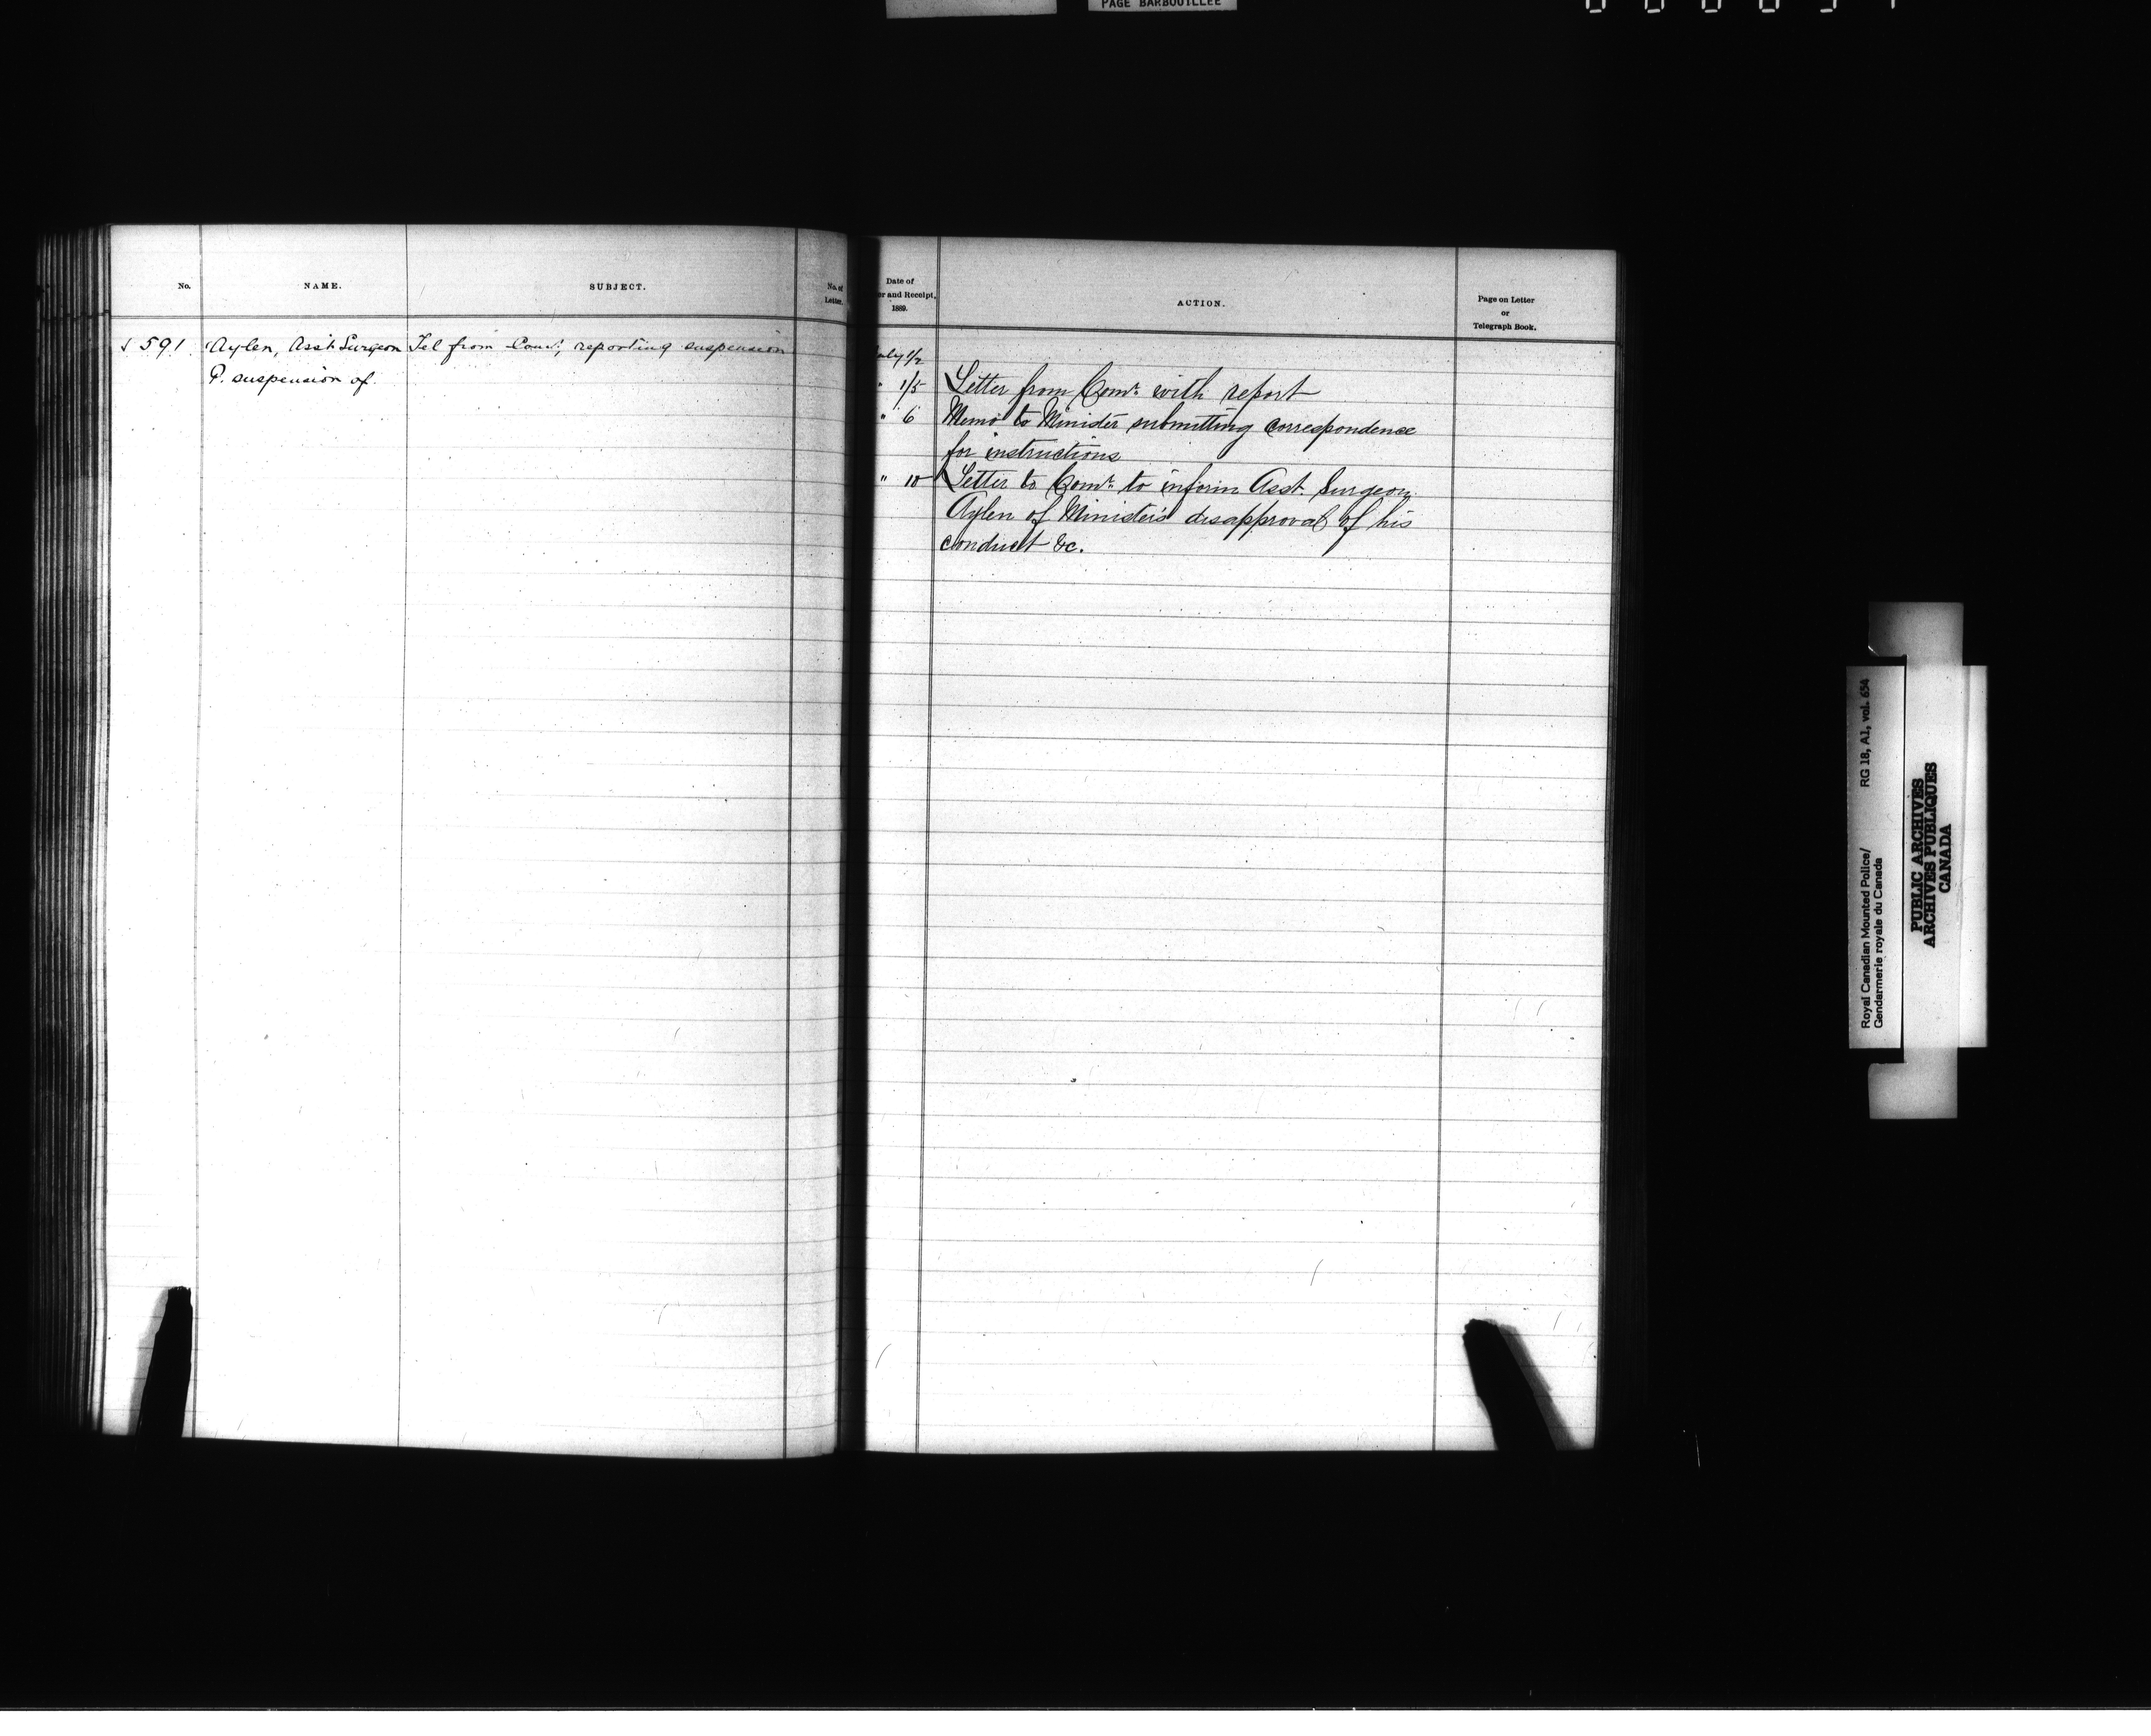 PAGE BARBOUILLÉE
No.
NAME.
SUBJECT.
No. of
Letter.
Date of
er and Receipt,
1889.
ACTION.
Page on Letter
or
Telegraph Book.
591. Aylen, Asst Surgeon Tel from Comr, reporting suspension
P. suspension of.
uly 1/2
" 1/5 Letter from Comr. with report
" 6 Memo to Minister submitting correspondence
for instructions
" 10 Letter to Comr. to inform Asst. Surgeon
Aylen of Minister's disapproval of his
conduct &c.
Royal Canadian Mounted Police/ RG 18, A1, vol. 654
Gendarmerie royale du Canada
PUBLIC ARCHIVES
ARCHIVES PUBLIQUES
CANADA